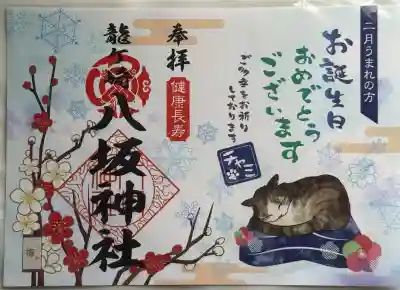 二月うまれの方
お誕生日
おめでとう
ございます
ご多幸をお祈り
しております
チャミ
奉拝
健康長寿
龍ケ崎
八坂神社